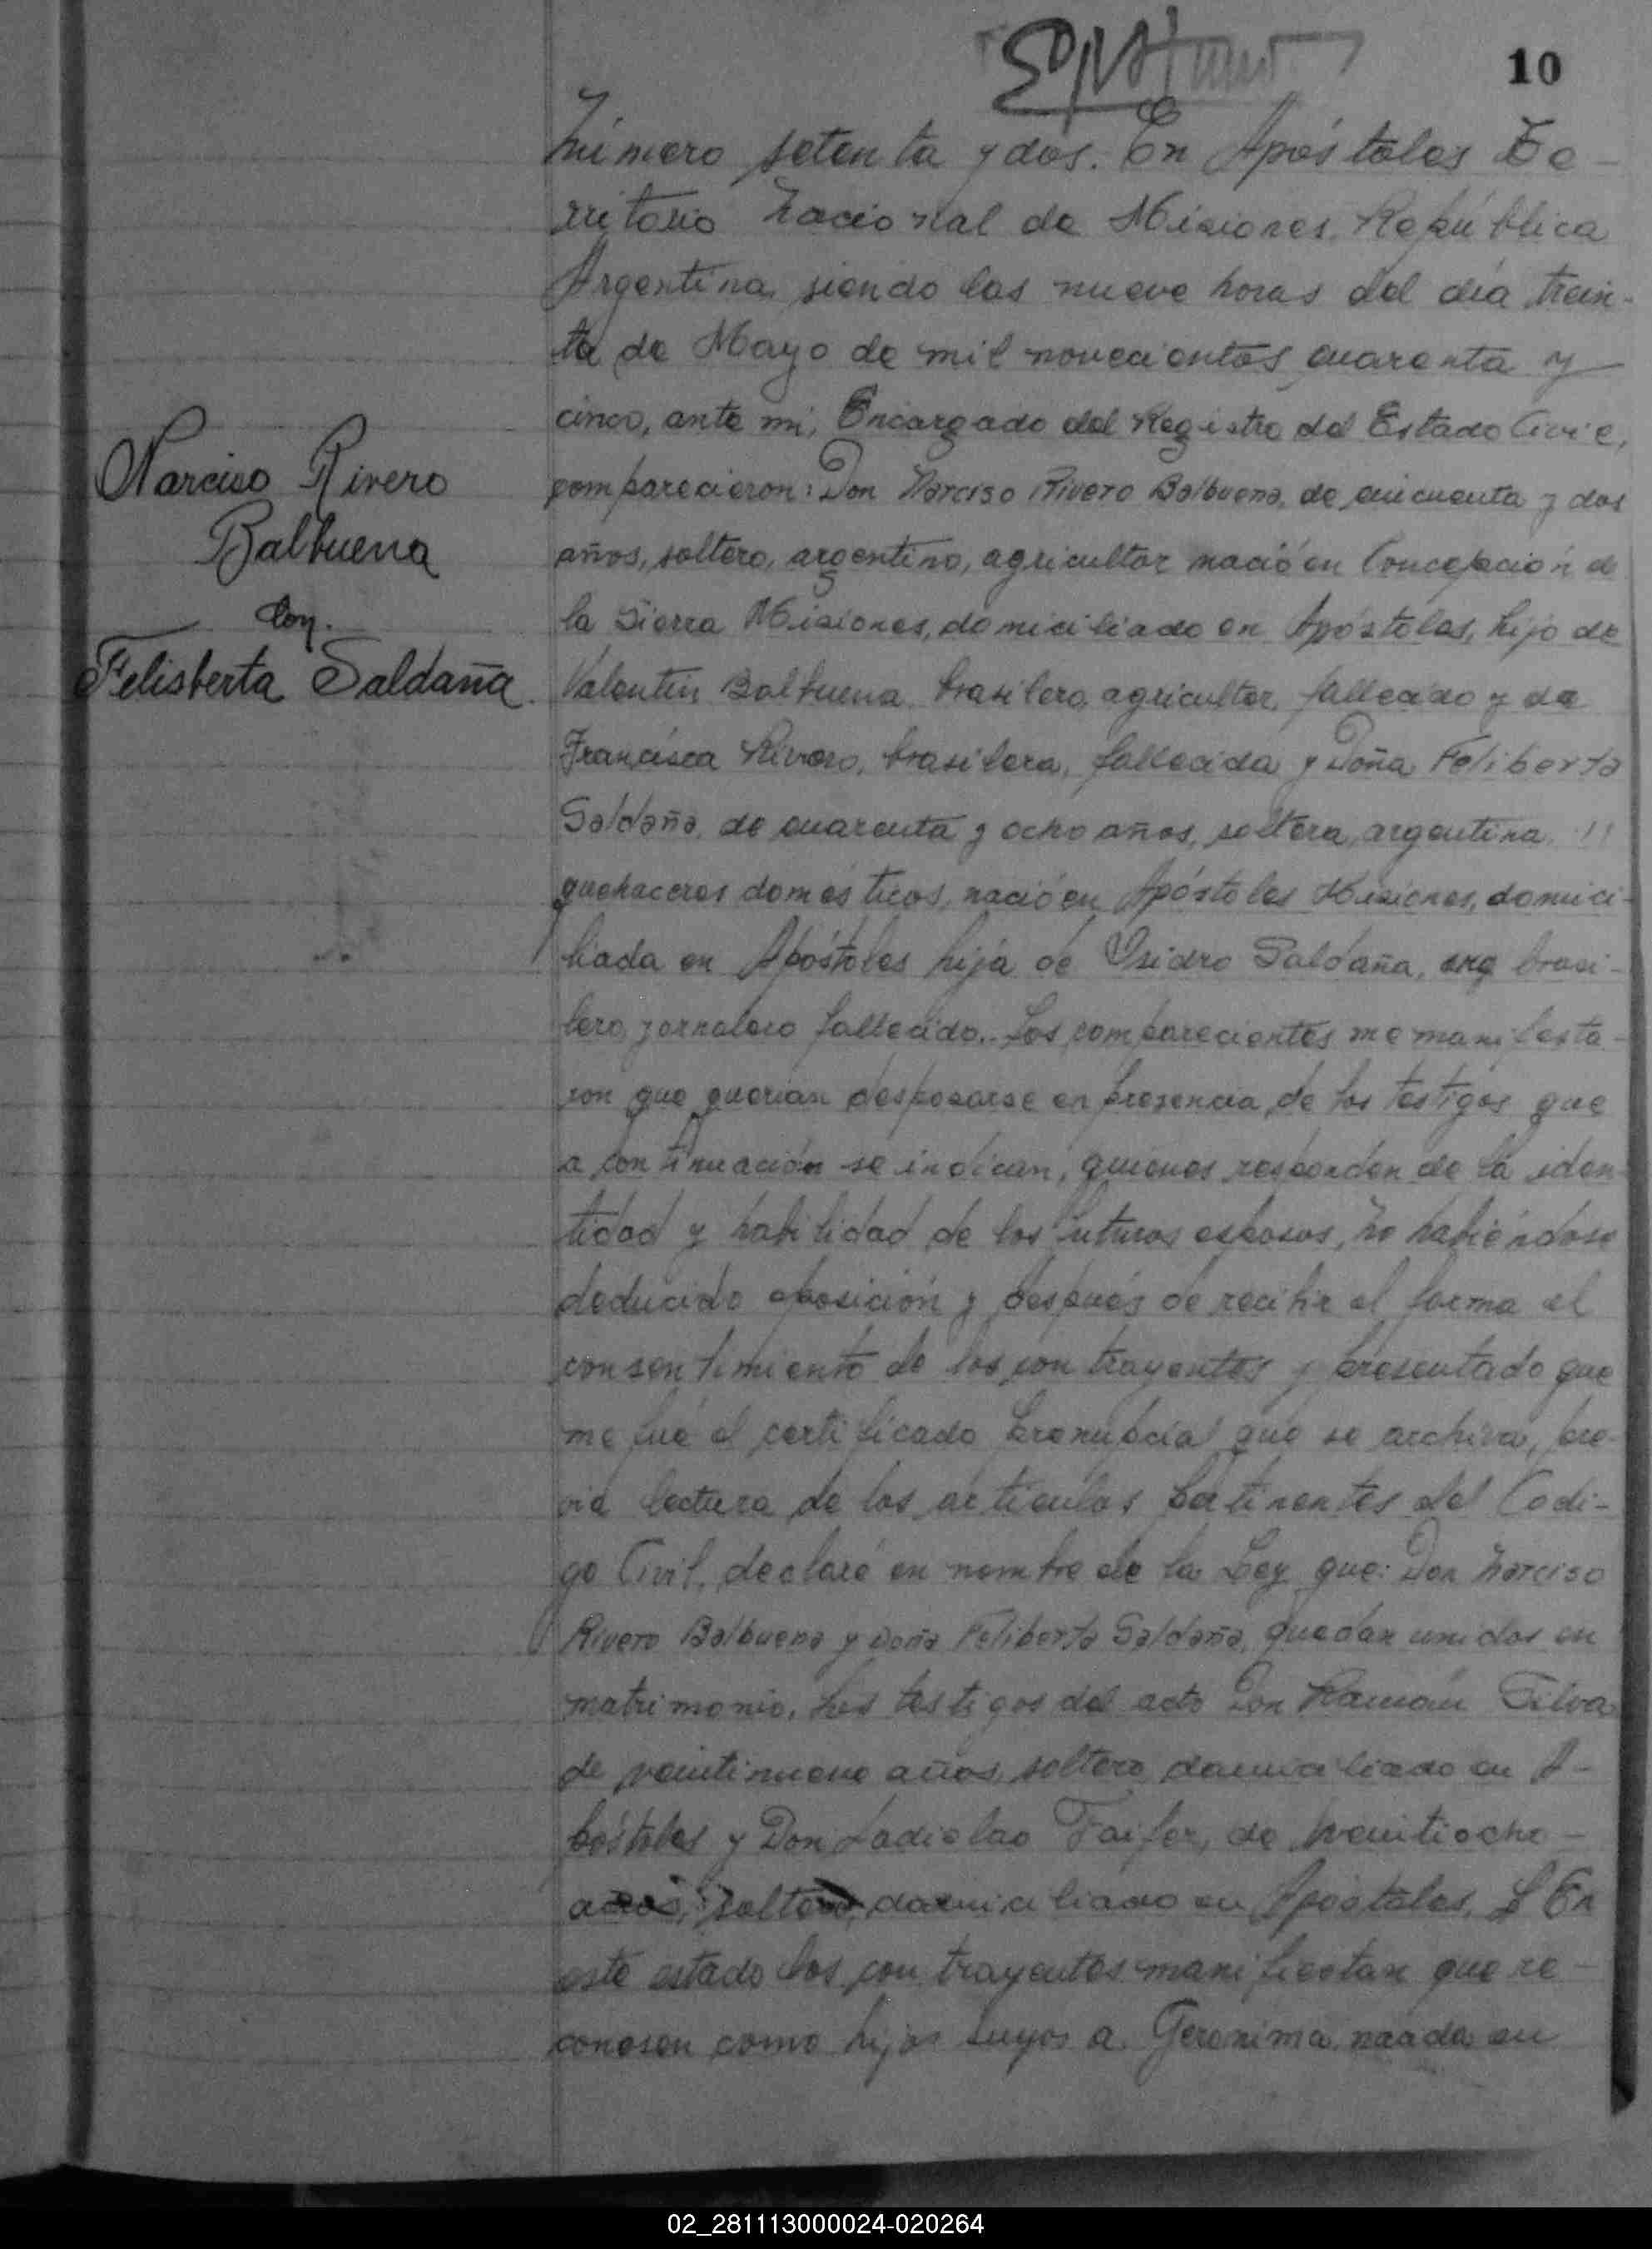 10
Número setenta y dos. En Apóstoles Te-
rritorio Nacional de Misiones República
Argentina, siendo las nueve horas del día trein-
ta de Mayo de mil novecientos cuarenta y
cinco, ante mi, Encargado del Registro del Estado Civil,
comparecieron: Don Narciso Rivero Balbuena, de cincuenta y dos
años, soltero, argentino, agricultor nació en Concepción de
la Sierra Misiones, domiciliado en Apóstoles, hijo de
Valentin Balbuena, brasilero, agricultor, fallecido y de
Francisca Rivero, brasilera, fallecida y Doña Feliberta
Saldaña, de cuarenta y ocho años, soltera, argentina,
quehaceres domésticos, nació en Apóstoles Misiones, domici-
liada en Apóstoles hija de Isidro Saldaña, arg brasi-
lero, jornalero fallecido.- Los comparecientes me manifesta-
ron que querian desposarse en presencia de los testigos que
a continuación se indican, quienes responden de la iden
tidad y habilidad de los futuros esposos, no habiéndose
deducido oposición y después de recibir el forma el
consentimiento de los contrayentes y presentado que
me fué el certificado prenupcial que se archiva, pre-
via lectura de los artículos pertinentes del Codi-
go Civil, declaré en nombre de la Ley que: Don Narciso
Rivero Balbuena y Doña Feliberta Saldaña, quedan unidos en
matrimonio, los testigos del acto Don Ramón Silva
de veintinueve años, soltero, domiciliado en A-
póstoles y Don Ladislao Faifer, de veintiocho
años, soltero, domiciliado en Apóstoles. En
este estado los contrayentes manifiestan que re-
conosen como hijos suyos a Geronima, nacida en
Narciso Rivero
Balbuena
con
Felisberta Saldaña.
02_281113000024-020264